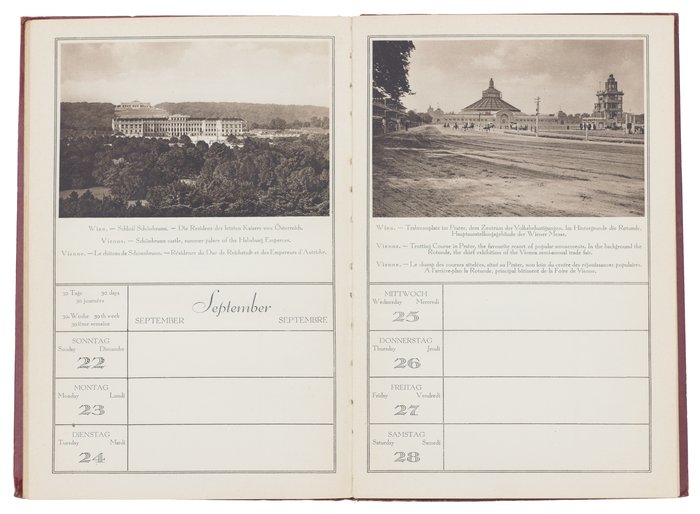 Wien. — Schloß Schönbrunn. — Die Residenz des letzten Kaisers von Österreich.
Vienna. — Schönbrunn castle, summer palace of the Habsburg Emperors.
Vienne. — Le château de Schoenbrunn. — Résidence du Duc de Reichstadt et des Empereurs d'Autriche.
30 Tage 30 days
30 journées
39. Woche 39 th week
39 ième semaine
September
SEPTEMBER SEPTEMBRE
SONNTAG
Sunday Dimanche
22
MONTAG
Monday Lundi
23
DIENSTAG
Tuesday Mardi
24
Wien. — Trabrennplatz im Prater, dem Zentrum der Volksbelustigungen. Im Hintergrunde die Rotunde,
Hauptausstellungsgebäude der Wiener Messe.
Vienna. — Trotting Course in Prater, the favourite resort of popular amusements. In the background the
Rotunde, the chief exhibitions of the Vienna semi-annual trade fair.
Vienne. — Le champ des courses attelées, situé au Prater, non loin du centre des réjouissances populaires.
A l'arrière-plan la Rotonde, principal bâtiment de la Foire de Vienne.
MITTWOCH
Wednesday Mercredi
25
DONNERSTAG
Thursday Jeudi
26
FREITAG
Friday Vendredi
27
SAMSTAG
Saturday Samedi
28